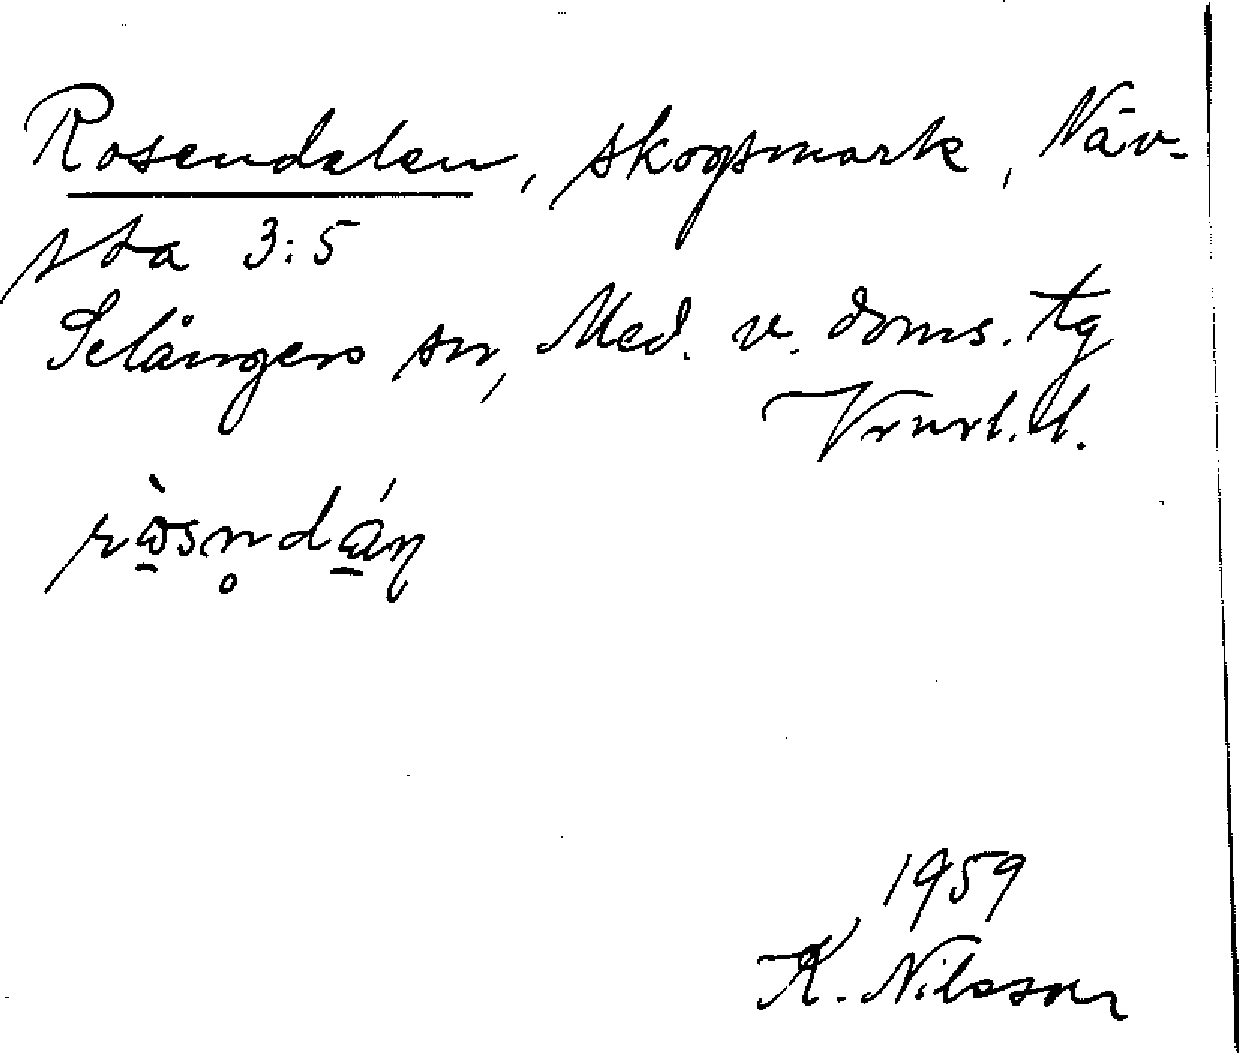 Rosendalen, skogsmark, Näv-
sta 3:5
Selångers sn, Med. v. doms. tg
Vrnrl. l.
1959
K. Nilsson